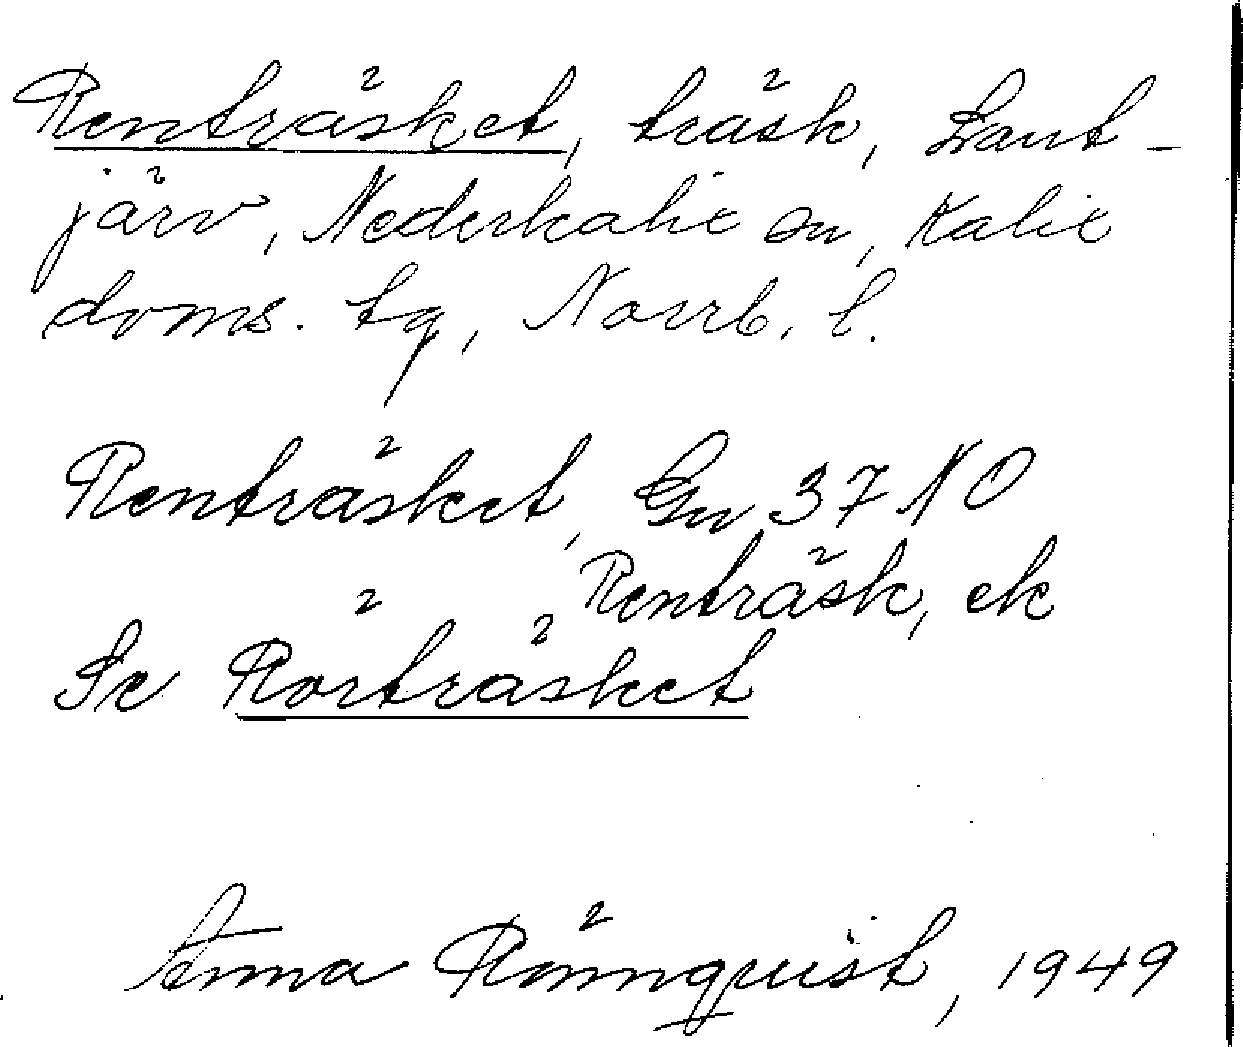 Renträsket, träsk, Lant-
järv, Nederkalix sn, Kalix
doms. tg, Norrb. l.
Renträsket, Gn 37 NO
Renträsk, ek
Se Rörträsket
Anna Rönnquist, 1949